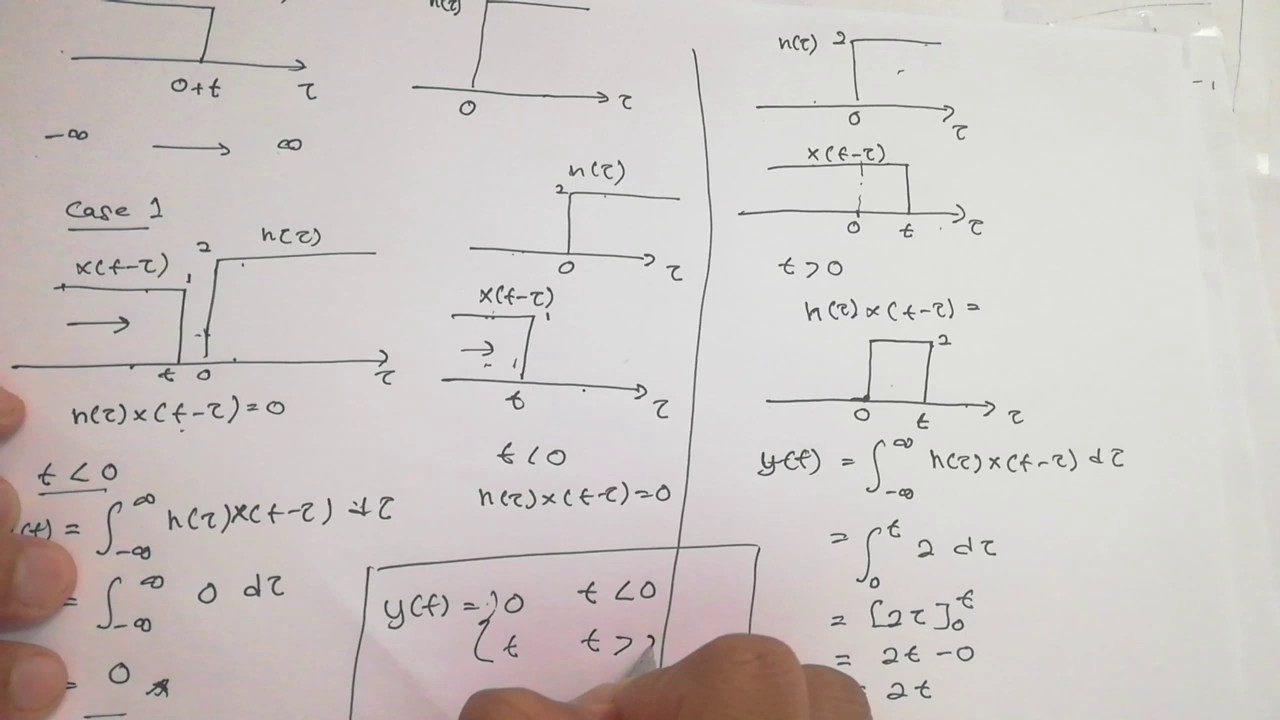 0+t τ
-∞ → ∞
h(τ)
0 τ
Case 1
x(t-τ) 1 2 h(τ)
t 0 τ
h(τ)x(t-τ)=0
t<0
(t) = ∫_{-∞}^{∞} h(τ)x(t-τ) dτ
= ∫_{-∞}^{∞} 0 dτ
= 0
h(τ)
2
0 τ
x(t-τ)
1
t τ
t<0
h(τ)x(t-τ)=0
y(t) = { 0 t<0
t t>
h(τ) 2
0 τ
x(t-τ)
0 t τ
t>0
h(τ)x(t-τ) =
2
0 t τ
y(t) = ∫_{-∞}^{∞} h(τ)x(t-τ) dτ
= ∫_0^t 2 dτ
= [2τ]_0^t
= 2t-0
2t